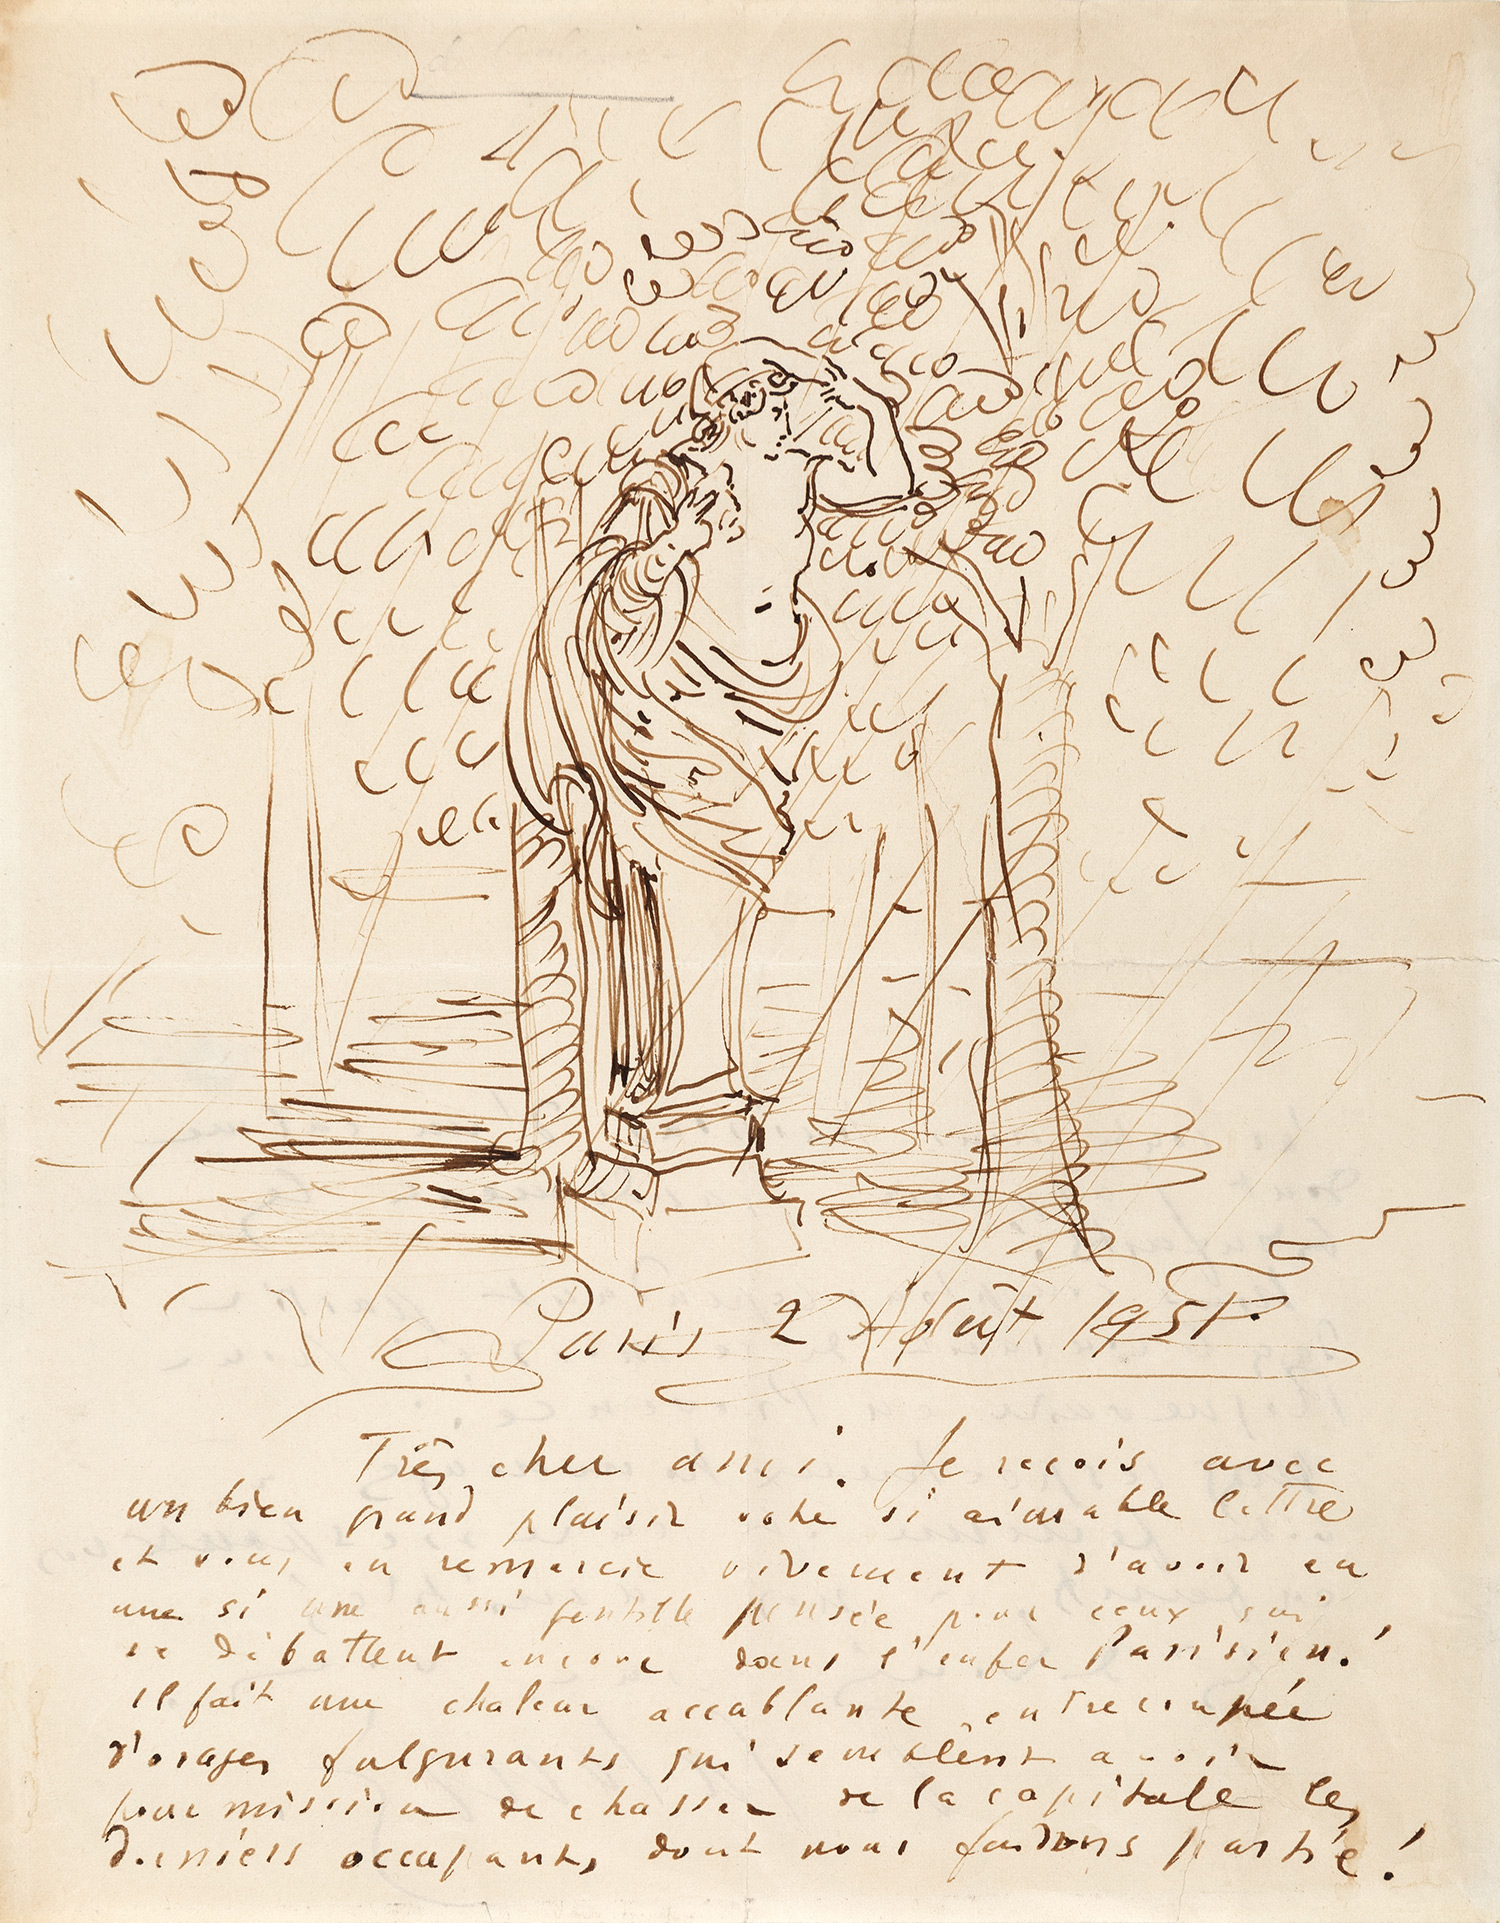 Paris 2 Août 1951.
Très cher ami. Je reçois avec
un bien grand plaisir votre si aimable lettre
et vous en remercie vivement d'avoir eu
une si une aussi gentille pensée pour ceux qui
se débattent encore dans l'enfer Parisien!
il fait une chaleur accablante, entrecoupée
d'orages fulgurants qui semblent avoir
pour mission de chasser de la capitale les
derniers occupants, dont nous faisons partie!